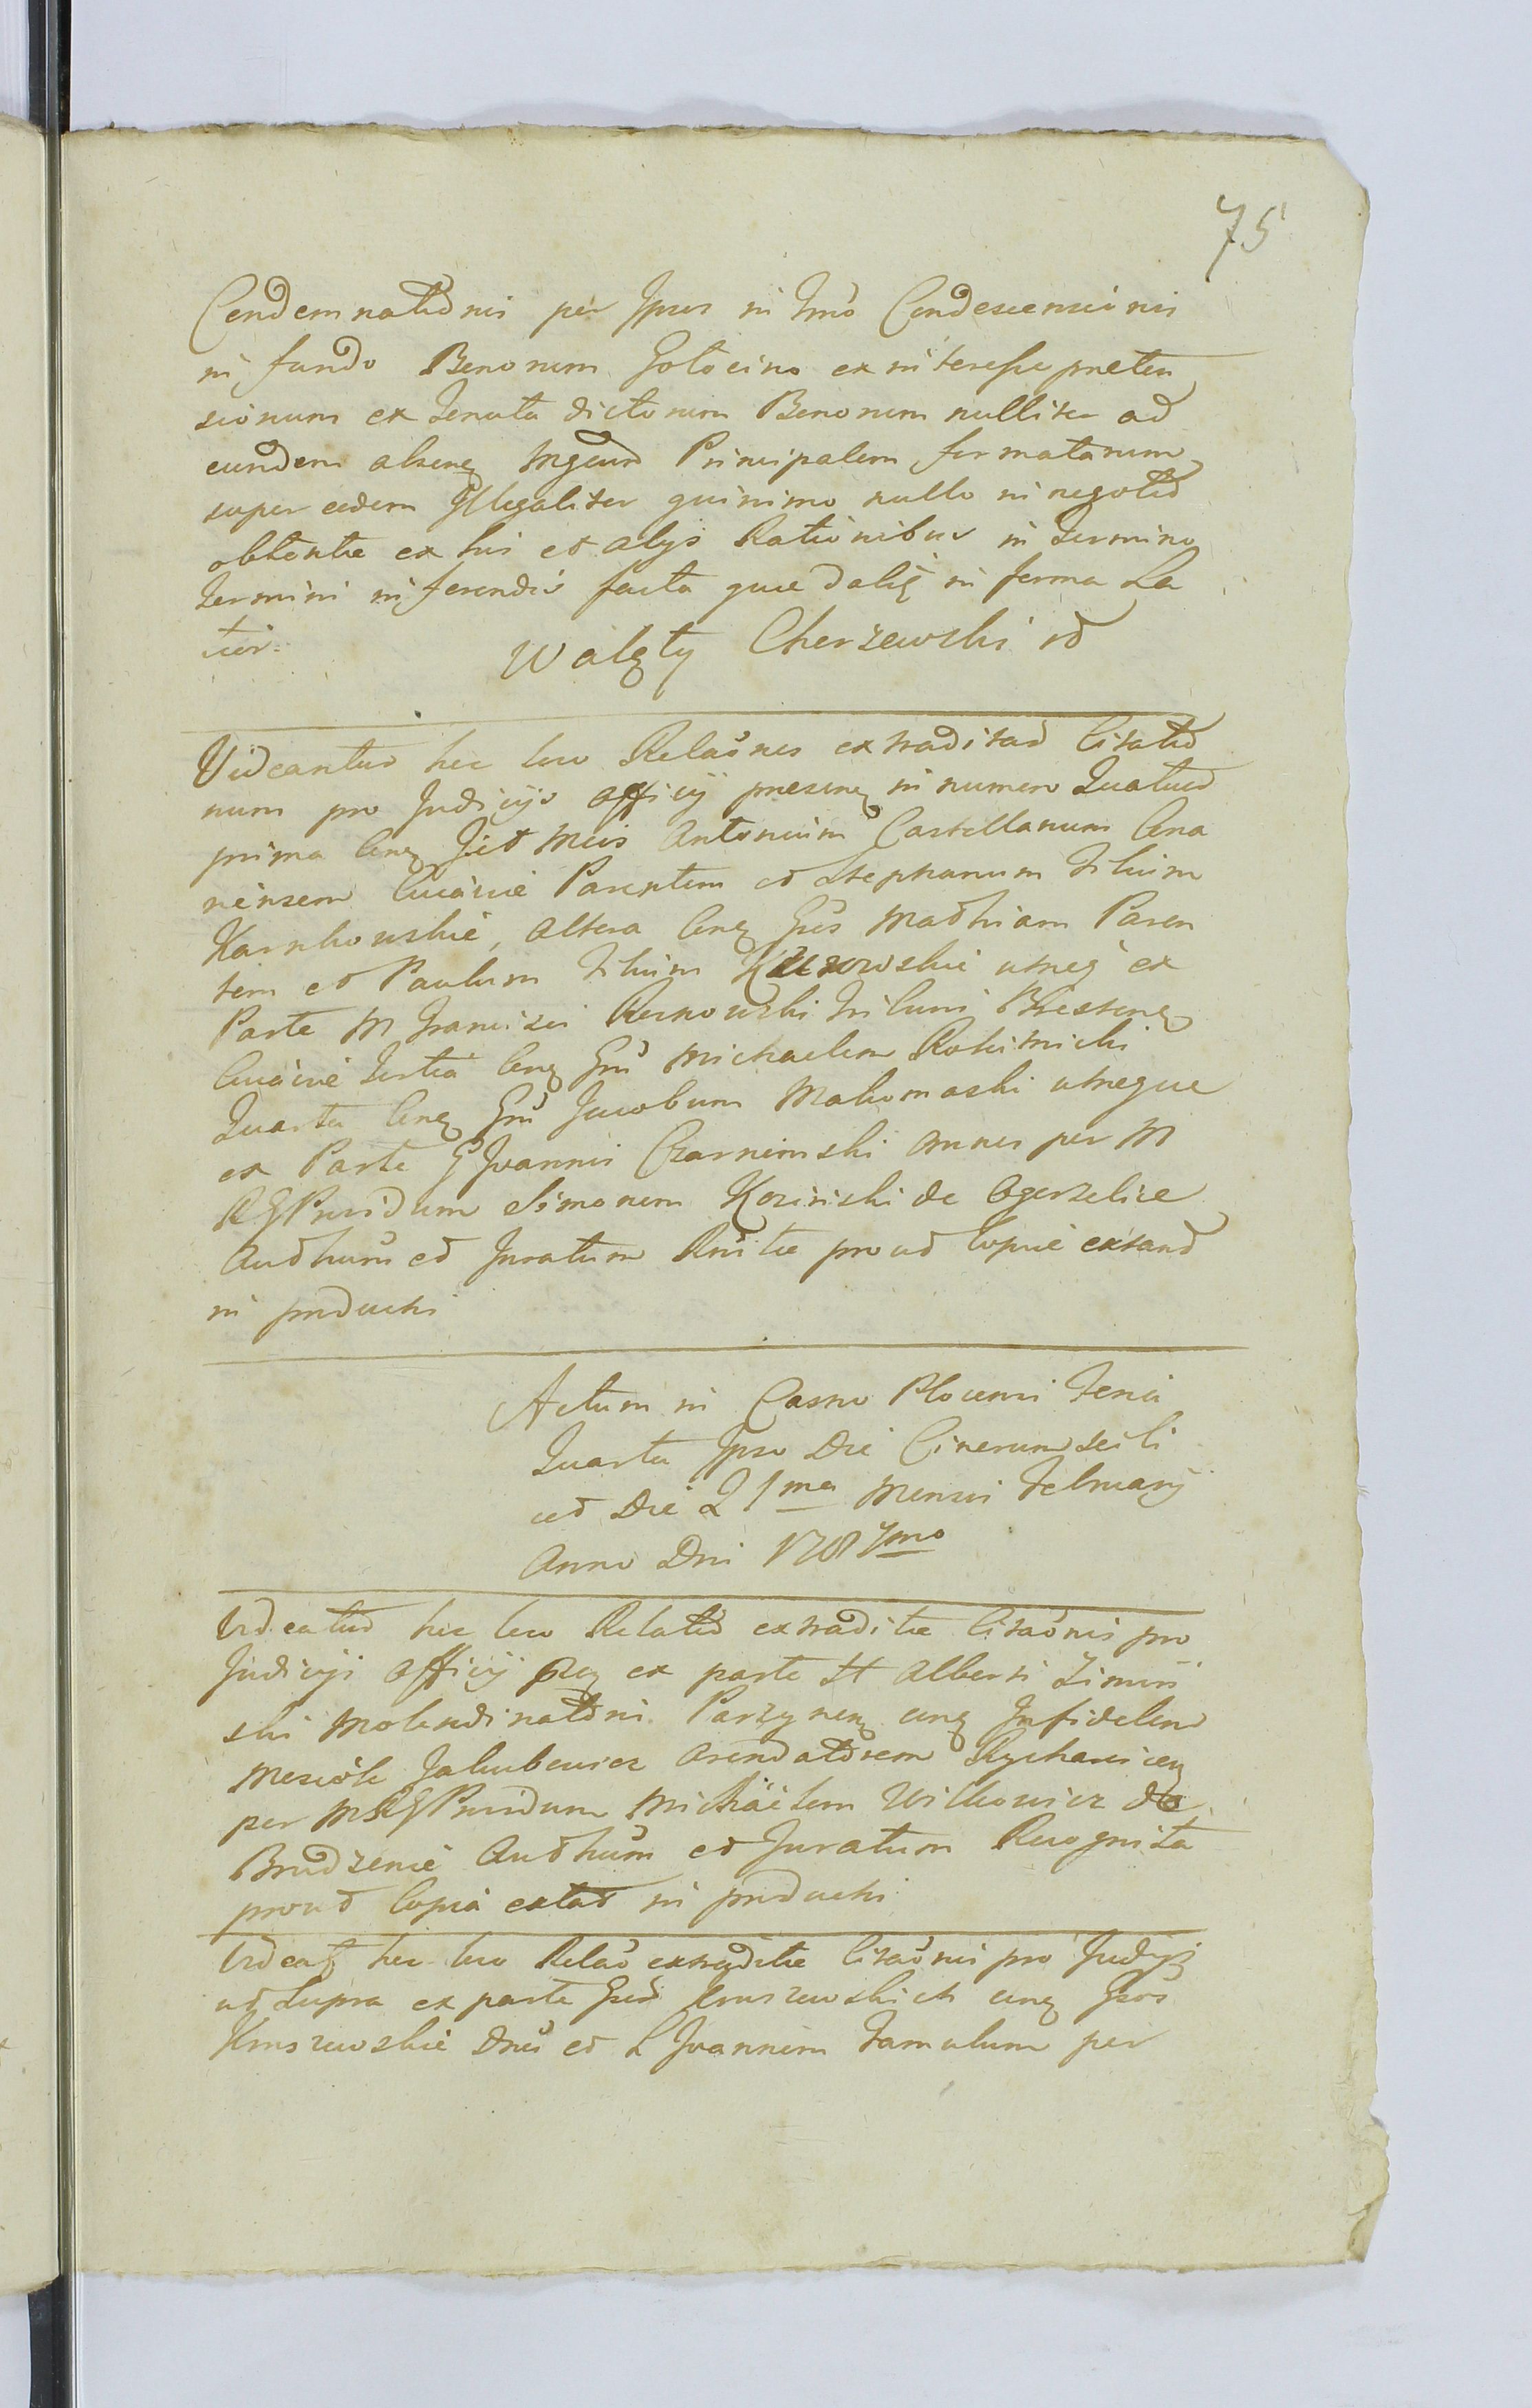 75
Condemnationis per Ipsos in Tnō Condescensionis
in fundo Bonorum Gotocino ex interesse preten
sionum ex Tenuta dictorum Bonorum nulliter ad
eundem absenę Mgcum Principalem formatarum
super eodem Illegaliter quinimo nullo in negotio
obtentæ ex his et alys Rationibus in Termino
Termini inferendis facta quæ dalię in forma La
tior:
Walęty Chorzewski
Videantur hic loco Relaōnes extraditar Citatio
num pro Judicÿs officÿ presenę in numero Quatuor
prima Conę Mcos Antonium Castellanum Cona
rensem Cuiaviæ Parentem et Stephanum Filium
Karnkowskie, altera Conę Gsos Mathiam Paren
tem et Paulum Filium utrinę ex
Parte M Francisci Tribuni Brestenę
Cuiaviæ Tertia Conę Gsū Michaelem Rokitnicki
Quarta Conę Gsū Jacobum Makomaski utrinque
ex Parte G Joannis Czarnieniski omnes per M
RG Providum Simonem Kosinski de Ogorzelice
Authum et Juratum Rnitæ prout Copiæ extant
in producti
Actum in Castro Plocensi Feria
Quarta Ipso Die Cinerum scili
cet Die 21ma Mensis February
Anno Dni 1787mo
Videatur hic loco Relatio extraditæ Citaōnis pro
Judicÿs officÿ Prę ex parte H Alberti Zimin
ski Molendinatoris Parzynenę conę Infidelem
Mesiek Jakubowicz Arendatorem Rycharcicenę
per MRG Providum Michäelem Witkowicz de
Brudzenie Authum et Juratum Recognita
prout Copia extat in producti
Videatę hic loco Relaō extraditæ Citaōnis pro Judicÿs
ut Supra ex parte Gsor Kruszewskich conę Gsos
Kruszewskie Dnōs et L Joannem Famulum per